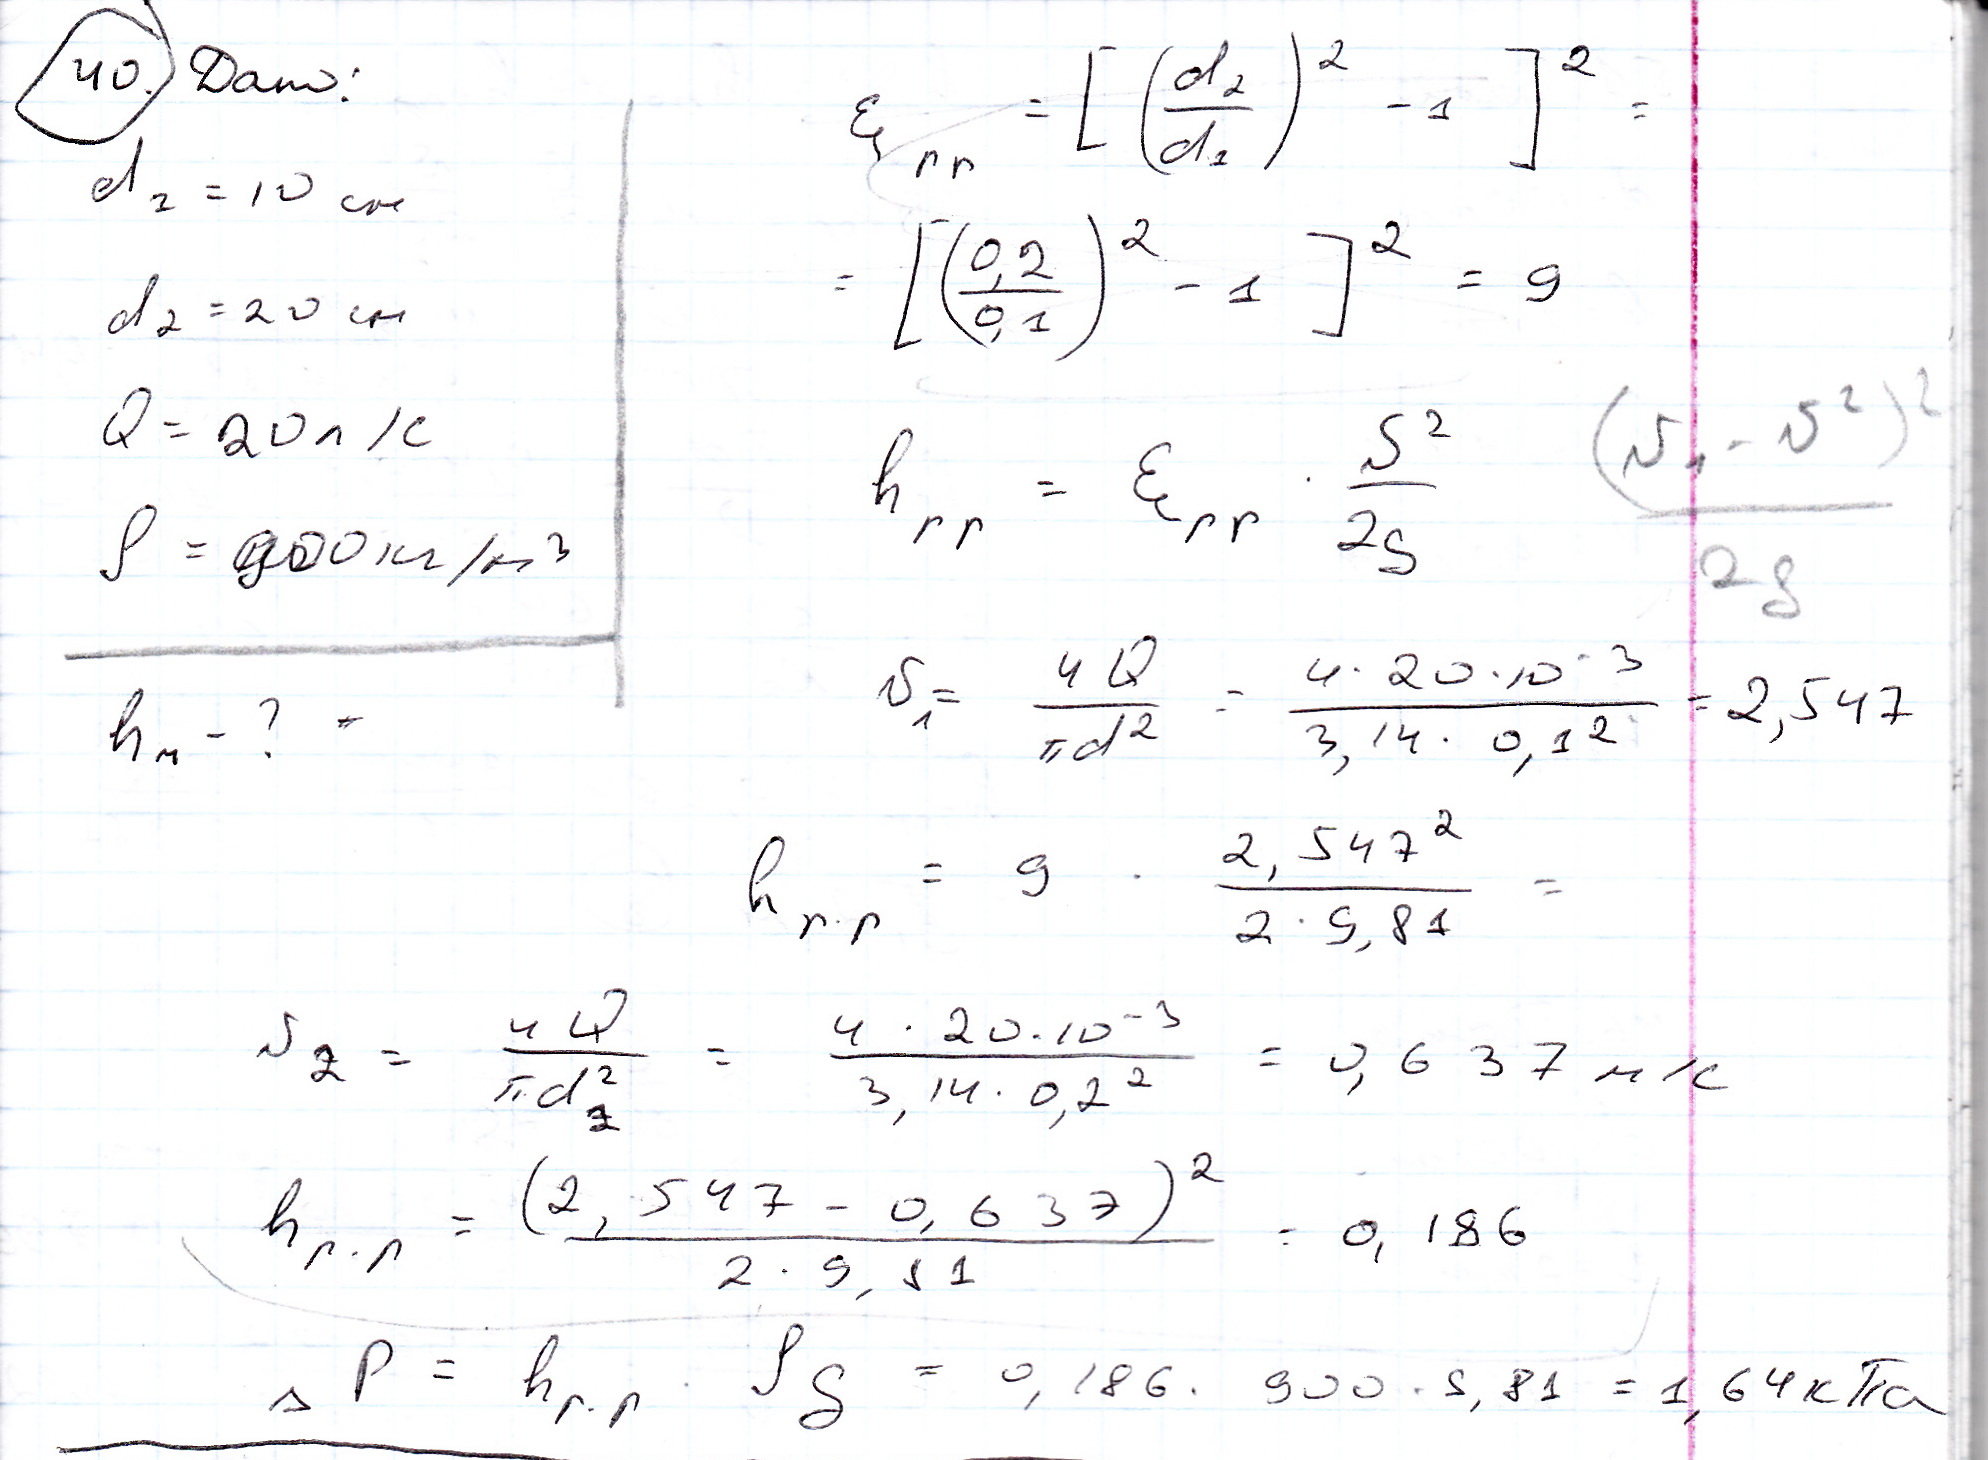 40. Дано:
d₂ = 10 см
d₂ = 20 см
Q = 20 л/с
ρ = 900 кг/м³
hм - ? =
ξрр = [(d₂/d₁)² - 1]² =
= [(0,2/0,1)² - 1]² = 9
hрр = ξрр · υ²/2g
(υ₁ - υ²)²/2g
υ₁ = 4Q/πd² = 4·20·10⁻³/3,14·0,1² = 2,547
hр.р = 9 · 2,547²/2·9,81 =
υ₂ = 4Q/πd₂² = 4·20·10⁻³/3,14·0,2² = 0,637 м/с
hр.р = (2,547 - 0,637)²/2·9,81 = 0,186
△P = hр.р · ρg = 0,186 · 900 · 9,81 = 1,64 кПа